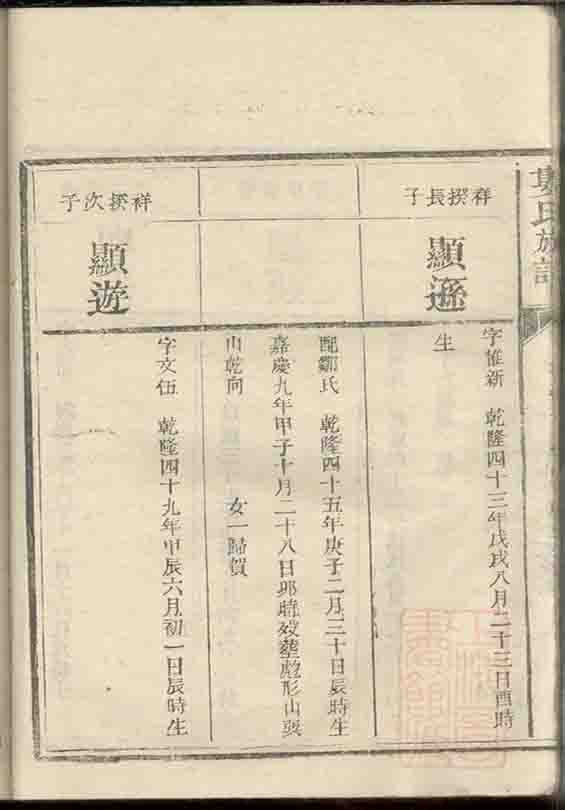 氏族譜
祥揆長子
顯遜
字惟新 乾隆四十三年戊戌八月二十三日酉時
生
配鄒氏 乾隆四十五年庚子二月三十日辰時生
嘉慶九年甲子十月二十八日卯時歿塟彪形山巽
山乾向 女一歸賀
祥揆次子
顯遊
字文伍 乾隆四十九年甲辰六月初一日辰時生